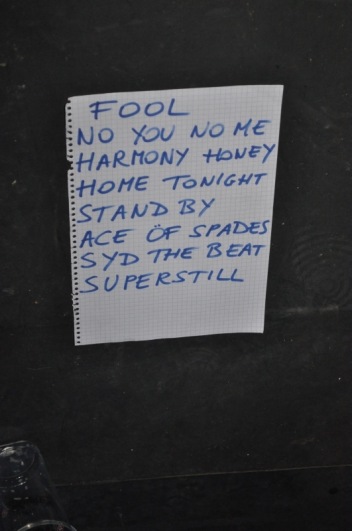 FOOL
NO YOU NO ME
HARMONY HONEY
HOME TONIGHT
STAND BY
ACE ÖF SPADES
SYD THE BEAT
SUPERSTILL